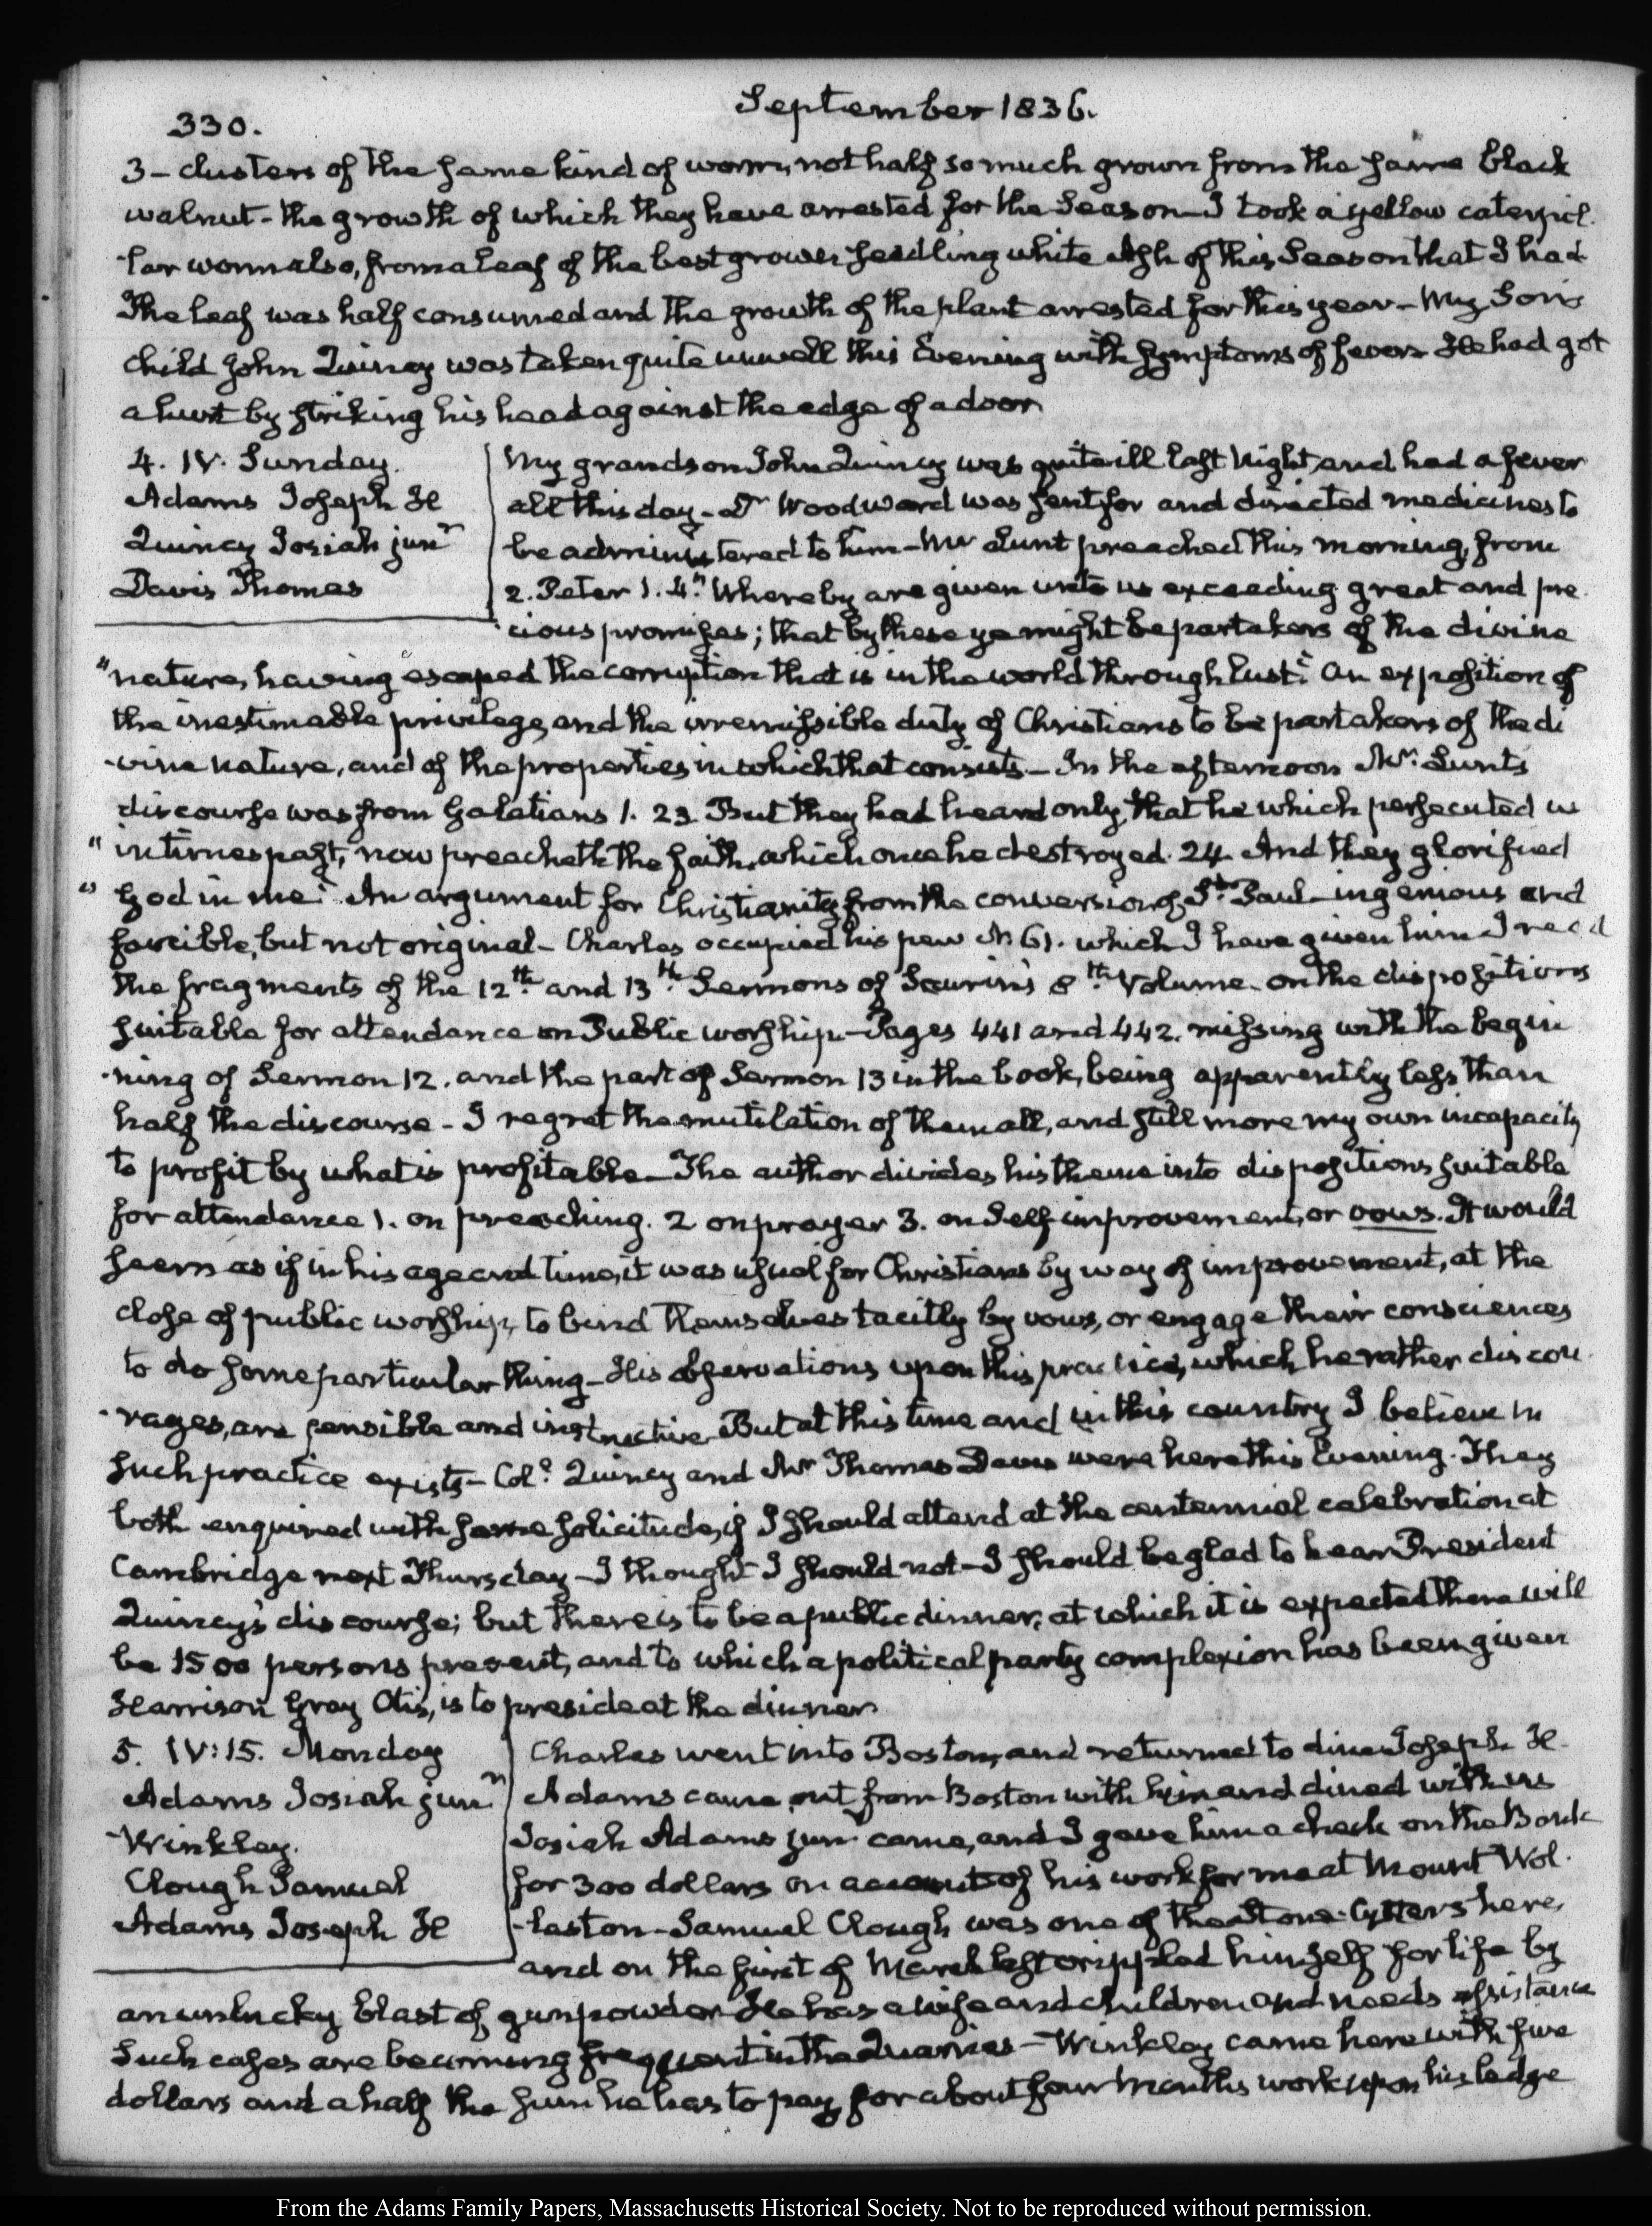 330.
September 1836.
3 - clusters of the same kind of worm, not half so much grown from the same black
walnut - the growth of which they have arrested for the Season - I took a yellow caterpil-
-lar worm also, from a leaf of the best grown seedling white Ash of this Season that I had
The leaf was half consumed and the growth of the plant arrested for this year - My Son's
child John Quincy was taken quite unwell this Evening with symptoms of fever He had got
a hurt by striking his head against the edge of a door
4. IV. Sunday.
Adams Joseph H
Quincy Josiah junr
Davis Thomas
My grandson John Quincy was quite ill last Night, and had a fever
all this day - Dr Woodward was sent for and directed medicines to
be administered to him - Mr Lunt preached this morning, from
2. Peter 1. 4. "Whereby are given unto us exceeding great and pre-
-cious promises; that by these ye might be partakers of the divine
"nature, having escaped the corruption that is in the world through lust." An exposition of
the inestimable privilege, and the irremissible duty of Christians to be partakers of the di
-vine nature, and of the properties in which that consists - In the afternoon Mr. Lunt's
discourse was from Galatians 1. 23 But they had heard only, that he which persecuted us
" in times past, now preacheth the faith, which once he destroyed. 24. And they glorified
" God in me." An argument for Christianity from the conversion of St. Paul - ingenious and
forcible, but not original - Charles occupied his pew N 61. which I have given him I read
the fragments of the 12th. and 13th. Sermons of Saurin's 8th. Volume. on the dispositions
suitable for attendance on Public worship - Pages 441 and 442. missing with the begin
-ning of Sermon 12. and the part of Sermon 13 in the book, being apparently less than
half the discourse - I regret the mutilation of them all, and still more my own incapacity
to profit by what is profitable - The author divides his theme into dispositions suitable
for attendance 1. on preaching. 2 on prayer 3. on Self improvement, or vows. It would
seem as if in his age and time, it was usual for Christians by way of improvement, at the
close of public worship, to bind themselves tacitly by vows, or engage their consciences
to do some particular thing - His observations upon this practice, which he rather discou-
-rages, are sensible and instructive But at this time and in this country I believe no
such practice exists - Coll. Quincy and Mr Thomas Davis were here this Evening. They
both enquired with some solicitude, if I should attend at the centennial celebration at
Cambridge next Thursday - I thought I should not - I should be glad to hear President
Quincy's discourse; but there is to be a public dinner, at which it is expected there will
be 1500 persons present, and to which a political party complexion has been given
Harrison Gray Otis, is to preside at the dinner
5. IV:15. Monday
Adams Josiah junr
Winkley.
Clough Samuel
Adams Joseph H
Charles went into Boston, and returned to dine Joseph H.
Adams came out from Boston with him and dined with us
Josiah Adams junr came, and I gave him a check on the Bank
for 300 dollars on account of his work for me at Mount Wol-
-laston - Samuel Clough was one of the Stone-Cutters here,
and on the first of March last crippled himself for life by
an unlucky blast of gunpowder He has a wife and children and needs assistance
Such cases are becoming frequent in the Quarries - Winkley came here with five
dollars and a half the sum he has to pay for about four Months work upon his ledge
From the Adams Family Papers, Massachusetts Historical Society. Not to be reproduced without permission.